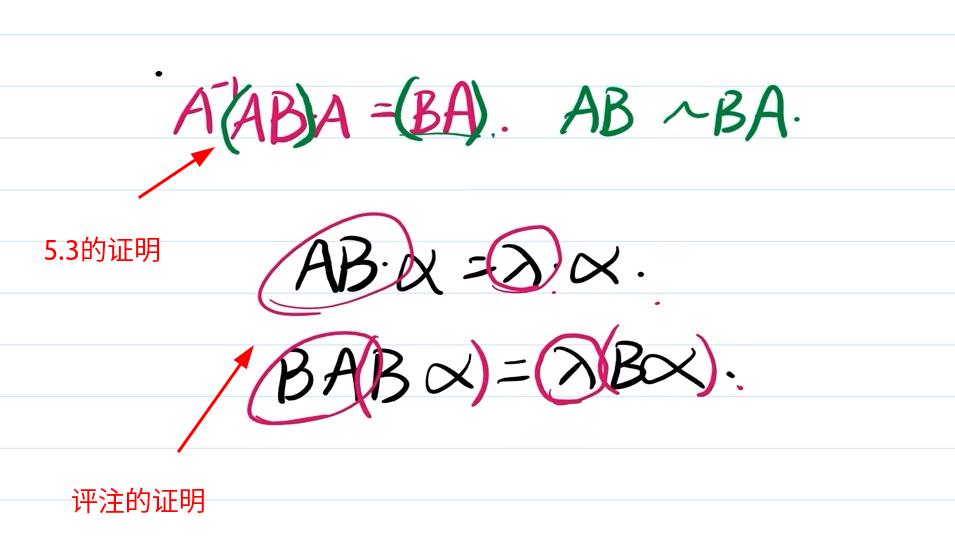 A⁻¹(AB)·A = (BA). AB ~ BA.
5.3的证明
AB·α = λ·α.
BA(Bα) = λ(Bα).
评注的证明